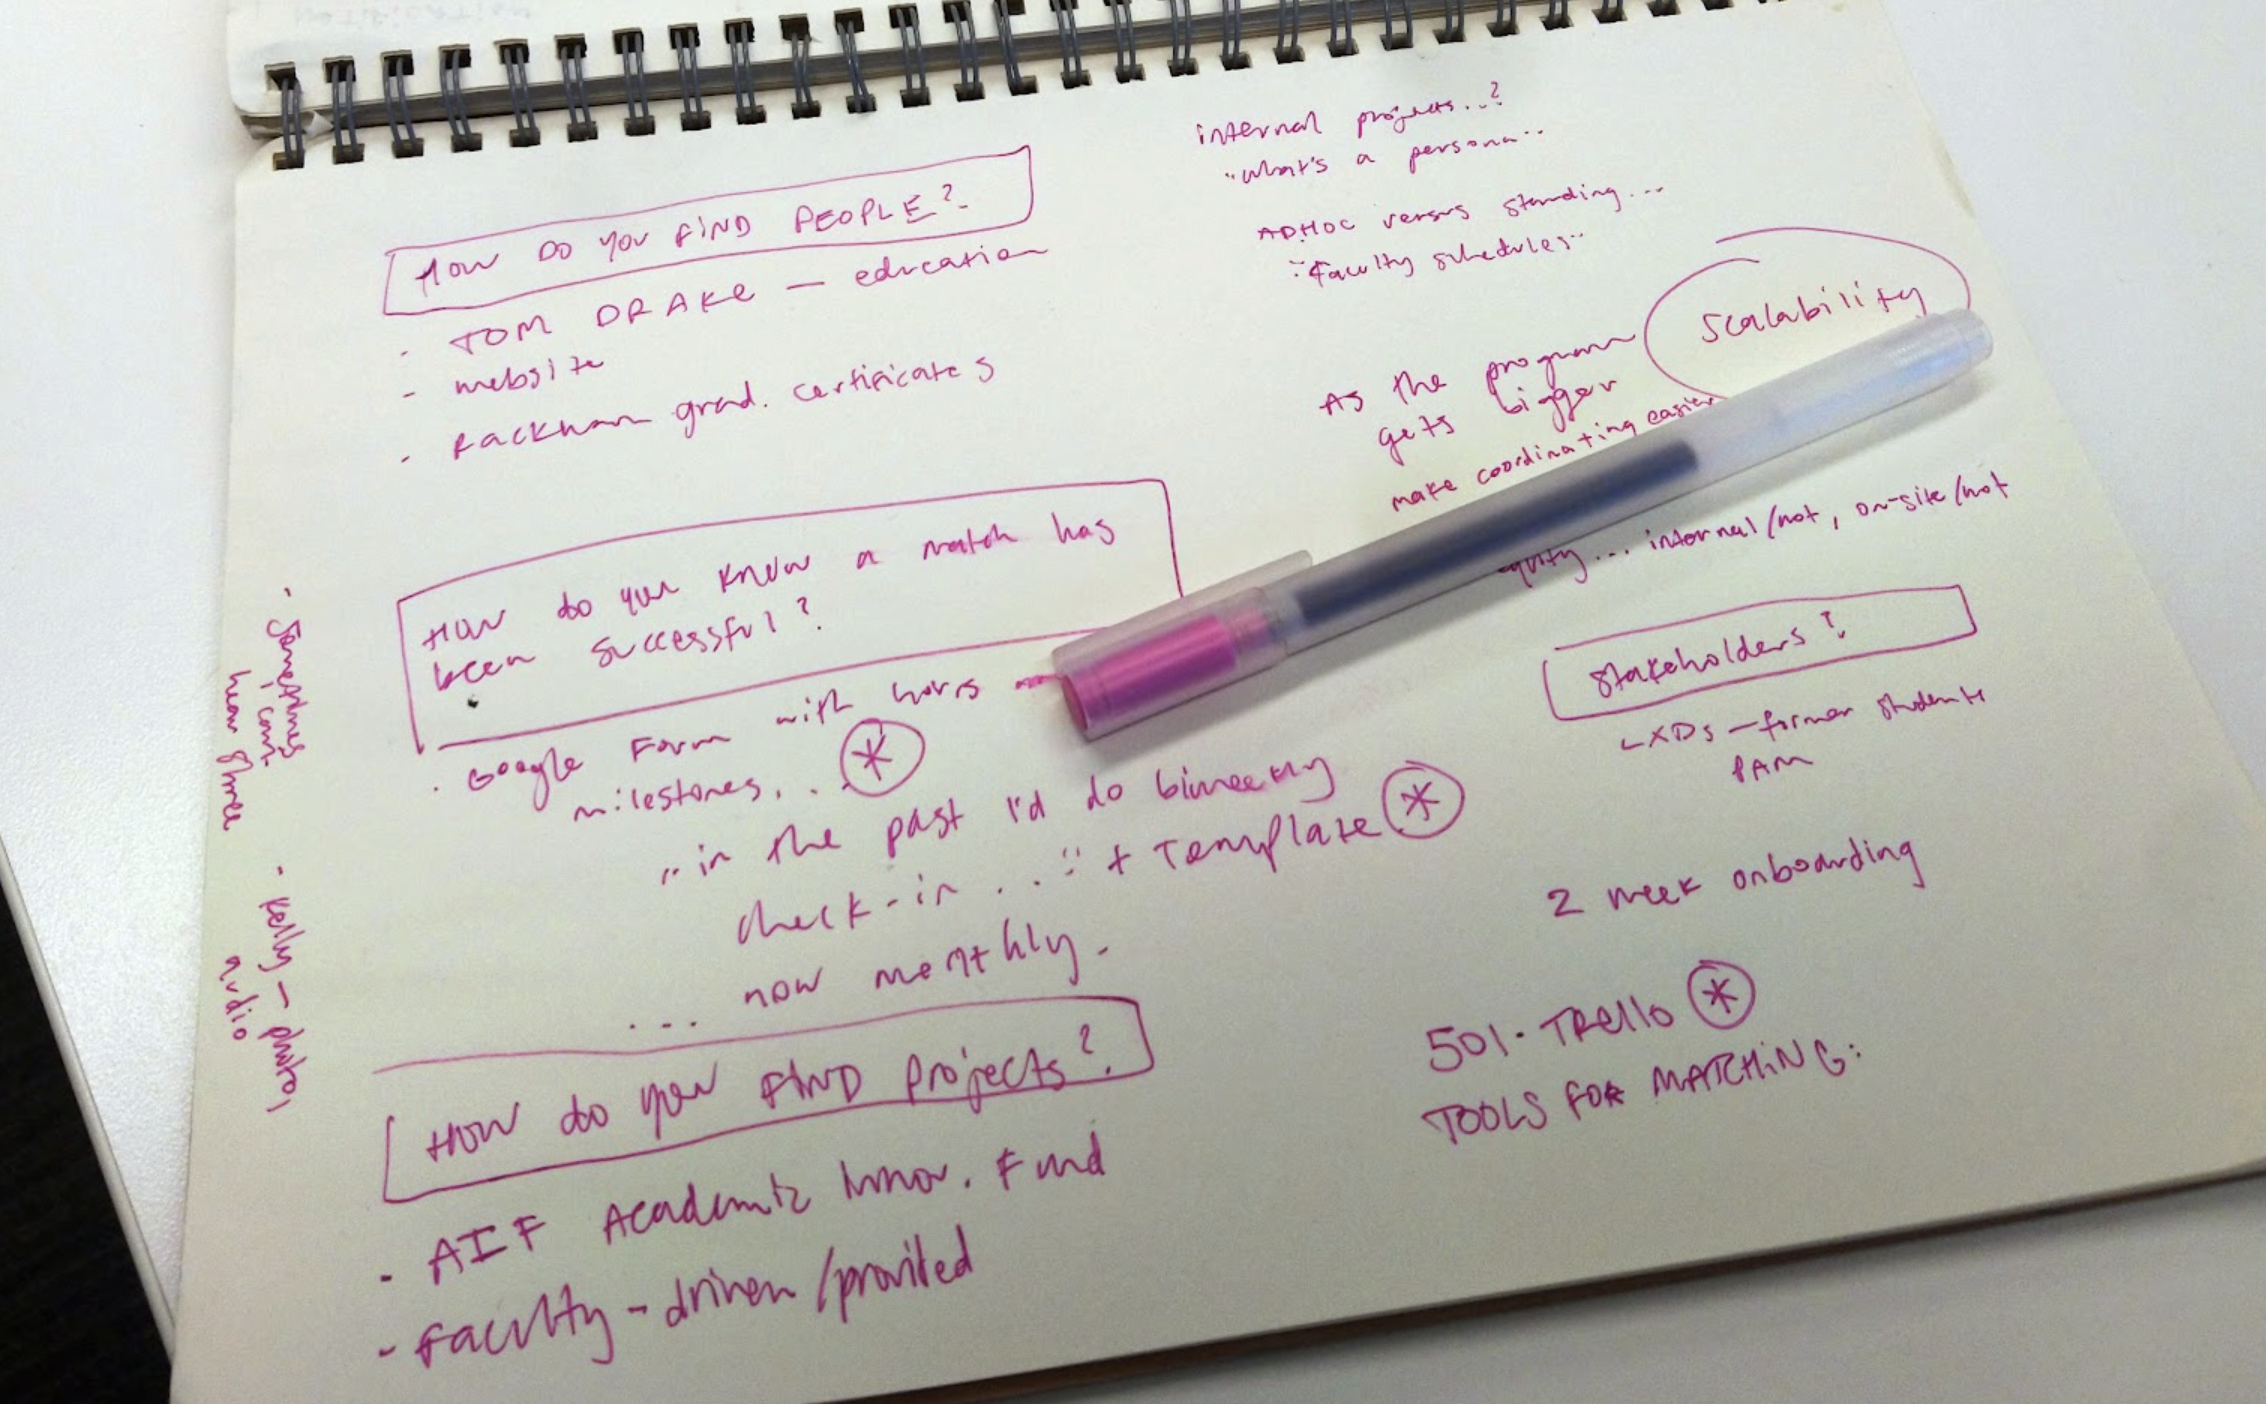 HOW DO YOU FIND PEOPLE?
- TOM DRAKE — education
- website
- Rackham grad. certificates
HOW do you know a match has
been successful?
. Google Form with hours
milestones...
*
"in the past I'd do biweekly
check-in..." + Template *
... now monthly.
HOW do you FIND projects?
- AIF Academic Innov. Fund
- Faculty-driven/provided
- Sometimes
can't
hear
- Kelly — photo,
audio
internal projects..?
"what's a persona"
ADHOC versus standing...
"Faculty schedules"
Scalability
As the program
gets bigger
make coordinating easier
... internal/not, on-site/not
Stakeholders?
LXDs — former students
PAM
2 week onboarding
501. TRello *
TOOLS FOR MATCHING: